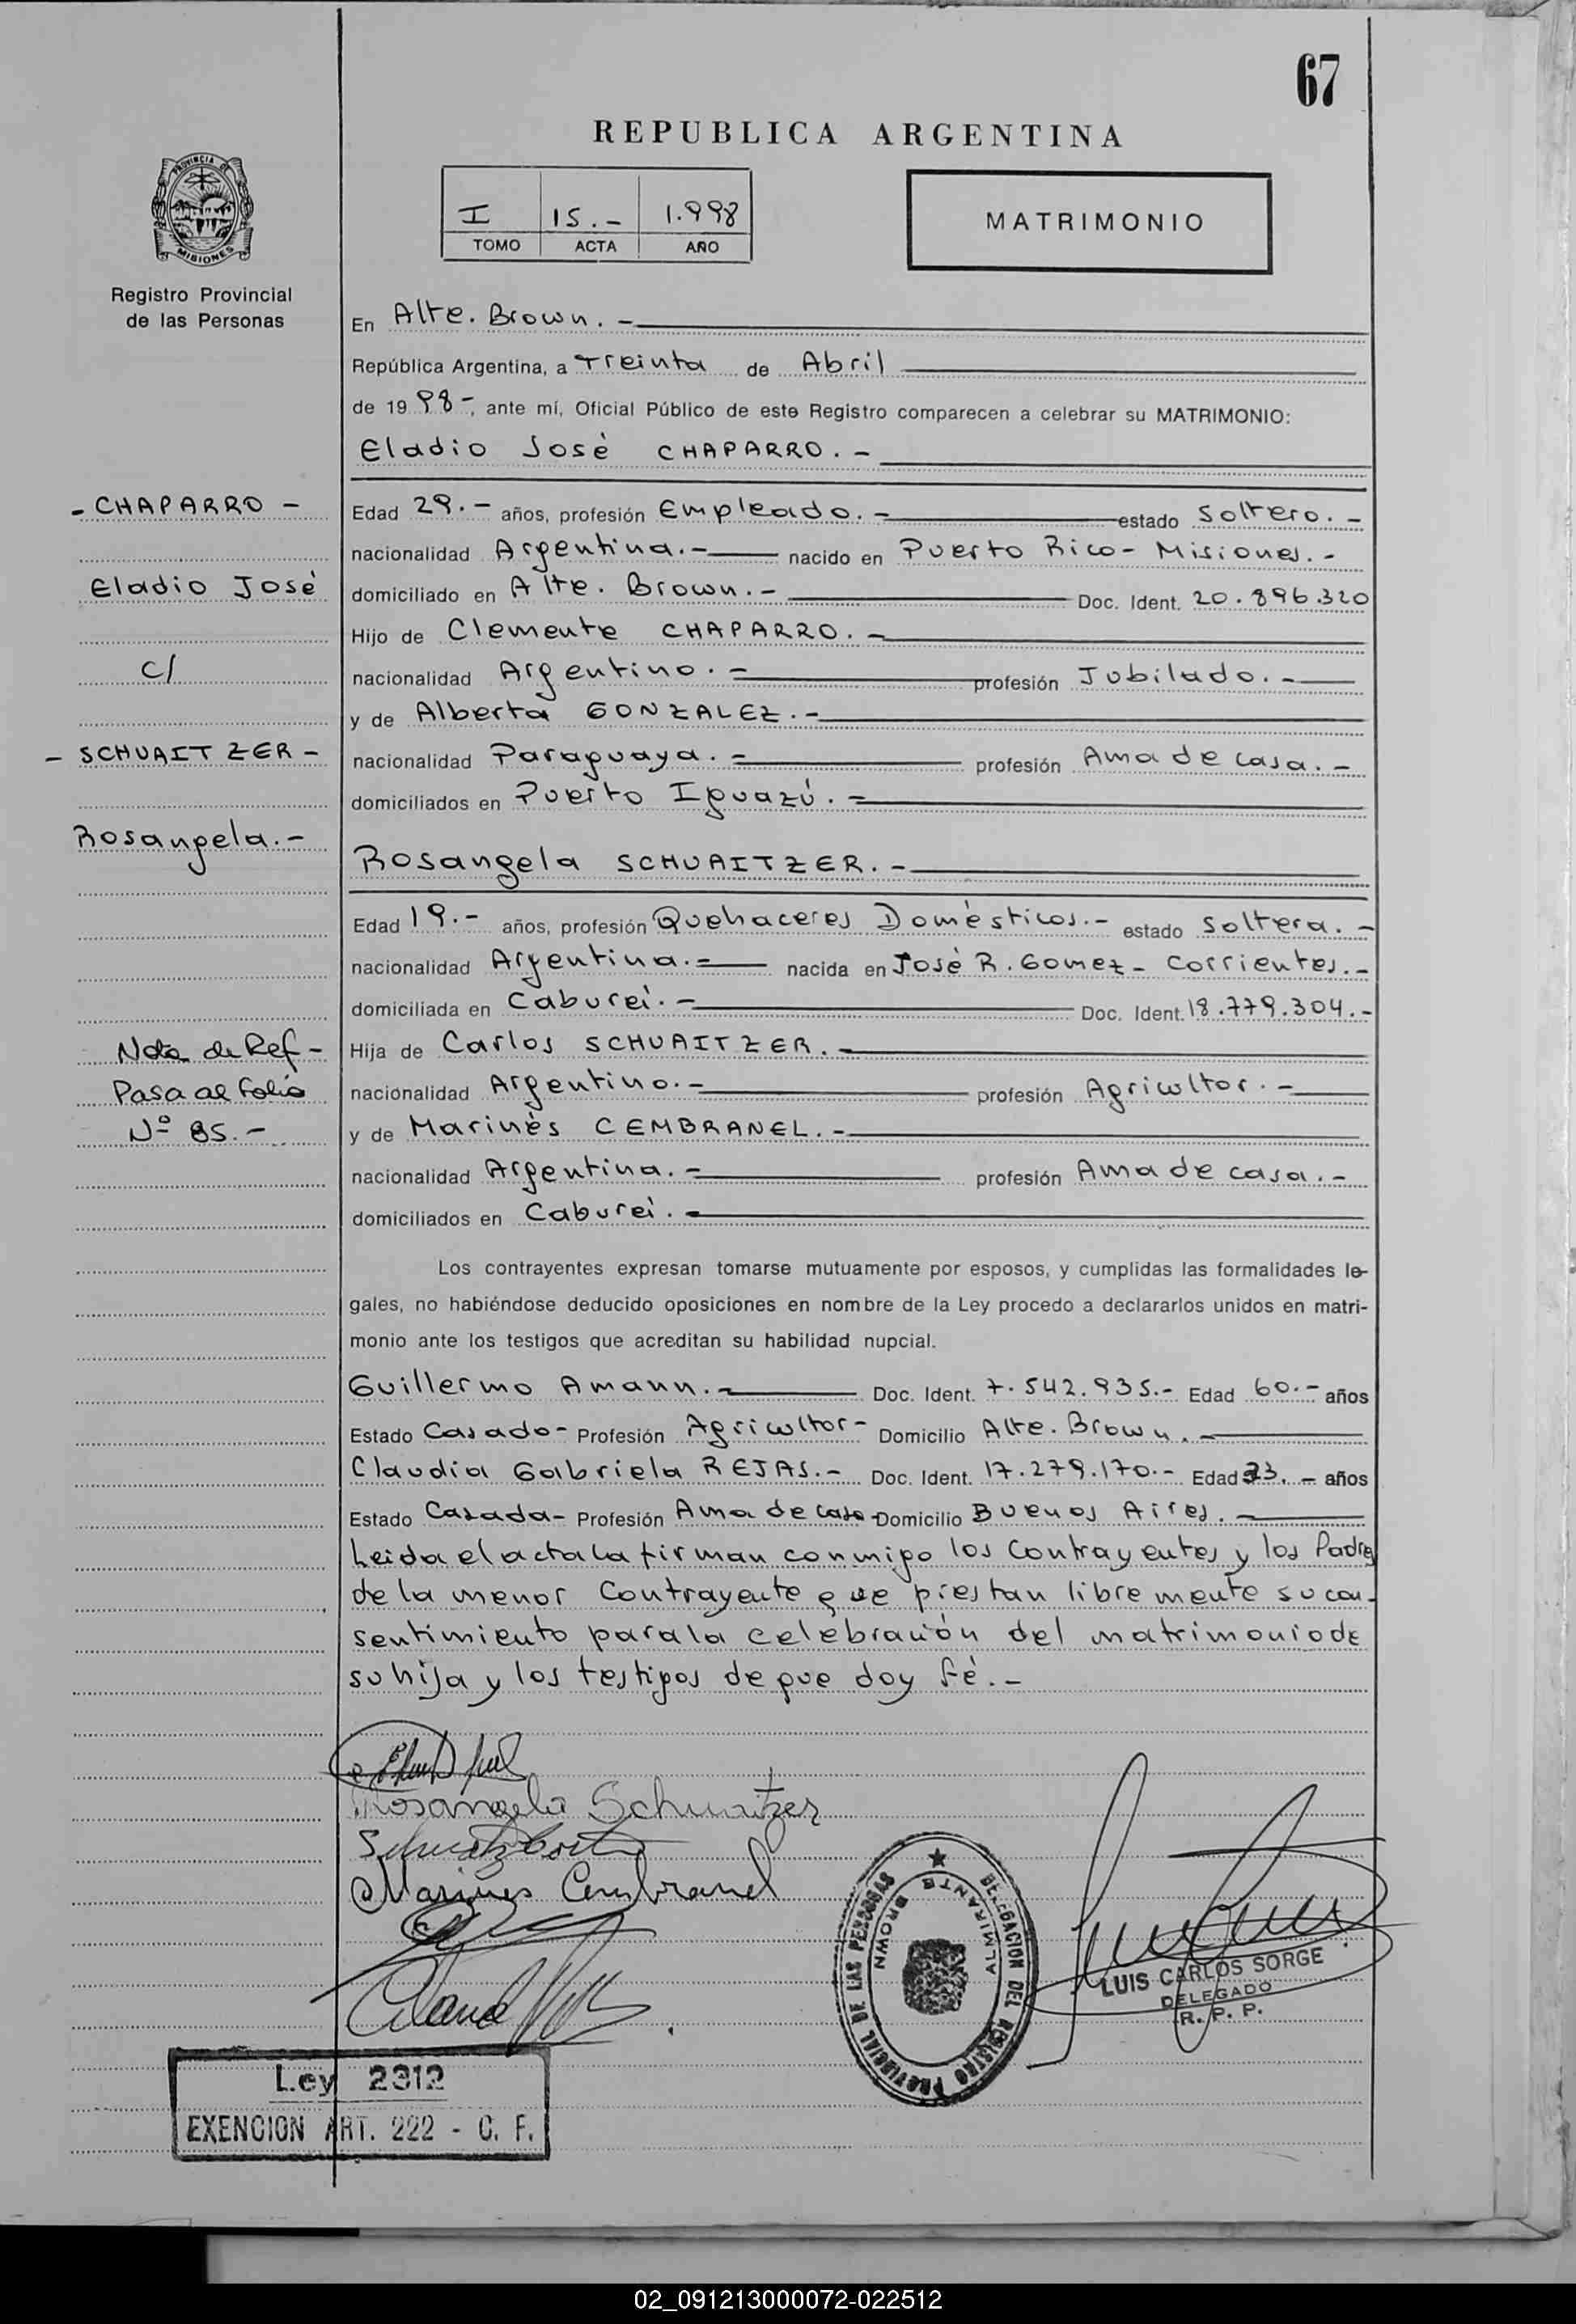 67
REPUBLICA ARGENTINA
I 15.- 1.998
TOMO ACTA AÑO
MATRIMONIO
PROVINCIA DE MISIONES
Registro Provincial
de las Personas
En Alte. Brown. -
República Argentina, a Treinta de Abril
de 1998-, ante mí, Oficial Público de este Registro comparecen a celebrar su MATRIMONIO:
Eladio José CHAPARRO. -
- CHAPARRO -
Edad 29.- años, profesión Empleado. - estado Soltero. -
nacionalidad Argentina.- nacido en Puerto Rico- Misiones. -
Eladio José
domiciliado en Alte. Brown. - Doc. Ident. 20.896.320
Hijo de Clemente CHAPARRO. -
c/
nacionalidad Argentino. - profesión Jubilado. -
y de Alberta GONZALEZ. -
- SCHUAITZER -
nacionalidad Paraguaya. - profesión Ama de casa. -
domiciliados en Puerto Iguazú. -
Rosangela. -
Rosangela SCHUAITZER. -
Edad 19.- años, profesión Quehaceres Domésticos.- estado Soltera. -
nacionalidad Argentina.- nacida en José R. Gomez- Corrientes. -
domiciliada en Caburei. - Doc. Ident. 18.779.304. -
Nota de Ref -
Hija de Carlos SCHUAITZER. -
Pasa al Folio
nacionalidad Argentino. - profesión Agricultor. -
Nº 85. -
y de Marinés CEMBRANEL. -
nacionalidad Argentina. - profesión Ama de casa. -
domiciliados en Caburei. -
Los contrayentes expresan tomarse mutuamente por esposos, y cumplidas las formalidades le-
gales, no habiéndose deducido oposiciones en nombre de la Ley procedo a declararlos unidos en matri-
monio ante los testigos que acreditan su habilidad nupcial.
Guillermo Amann. - Doc. Ident. 7.542.935.- Edad 60.- años
Estado Casado- Profesión Agricultor- Domicilio Alte. Brown. -
Claudia Gabriela REJAS. - Doc. Ident. 17.279.170.- Edad 33. - años
Estado Casada- Profesión Ama de casa- Domicilio Buenos Aires. -
Leida el acta la firman conmigo los Contrayentes y los Padres
de la menor Contrayente que prestan libremente su con-
sentimiento para la celebración del matrimonio de
su hija y los testigos de que doy fé. -
Rosangela Schuaitzer
Marines Cembranel
DELEGACION DEL REGISTRO PROVINCIAL DE LAS PERSONAS
ALMIRANTE BROWN
LUIS CARLOS SORGE
DELEGADO
R. P. P.
Ley 2312
EXENCION ART. 222 - C. F.
02_091213000072-022512